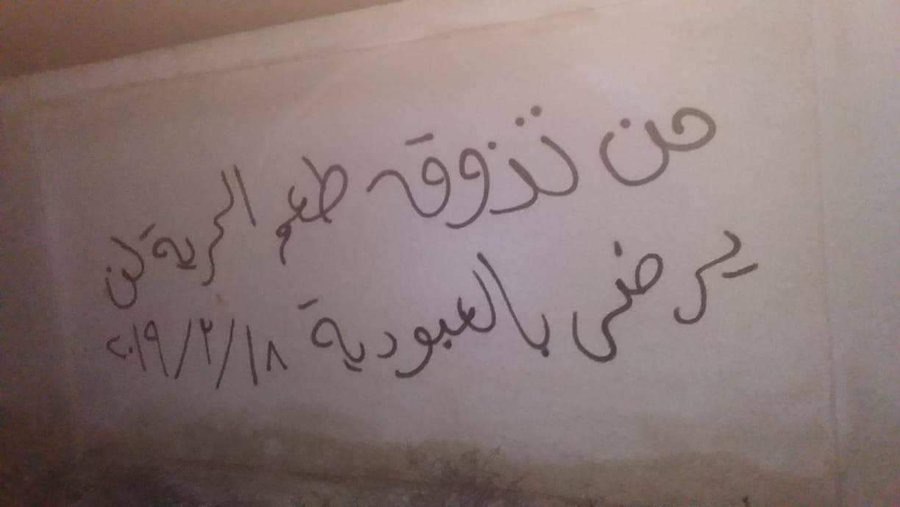 من تذوق طعم الحرية لن
يرضى بالعبودية ٢٠١٩/٢/١٨